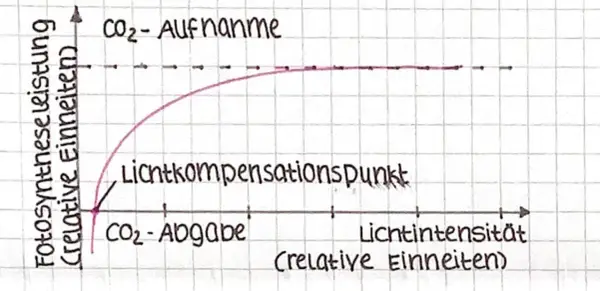 CO₂-Aufnahme
Fotosyntheseleistung
(relative Einheiten)
Lichtkompensationspunkt
CO₂-Abgabe
Lichtintensität
(relative Einheiten)